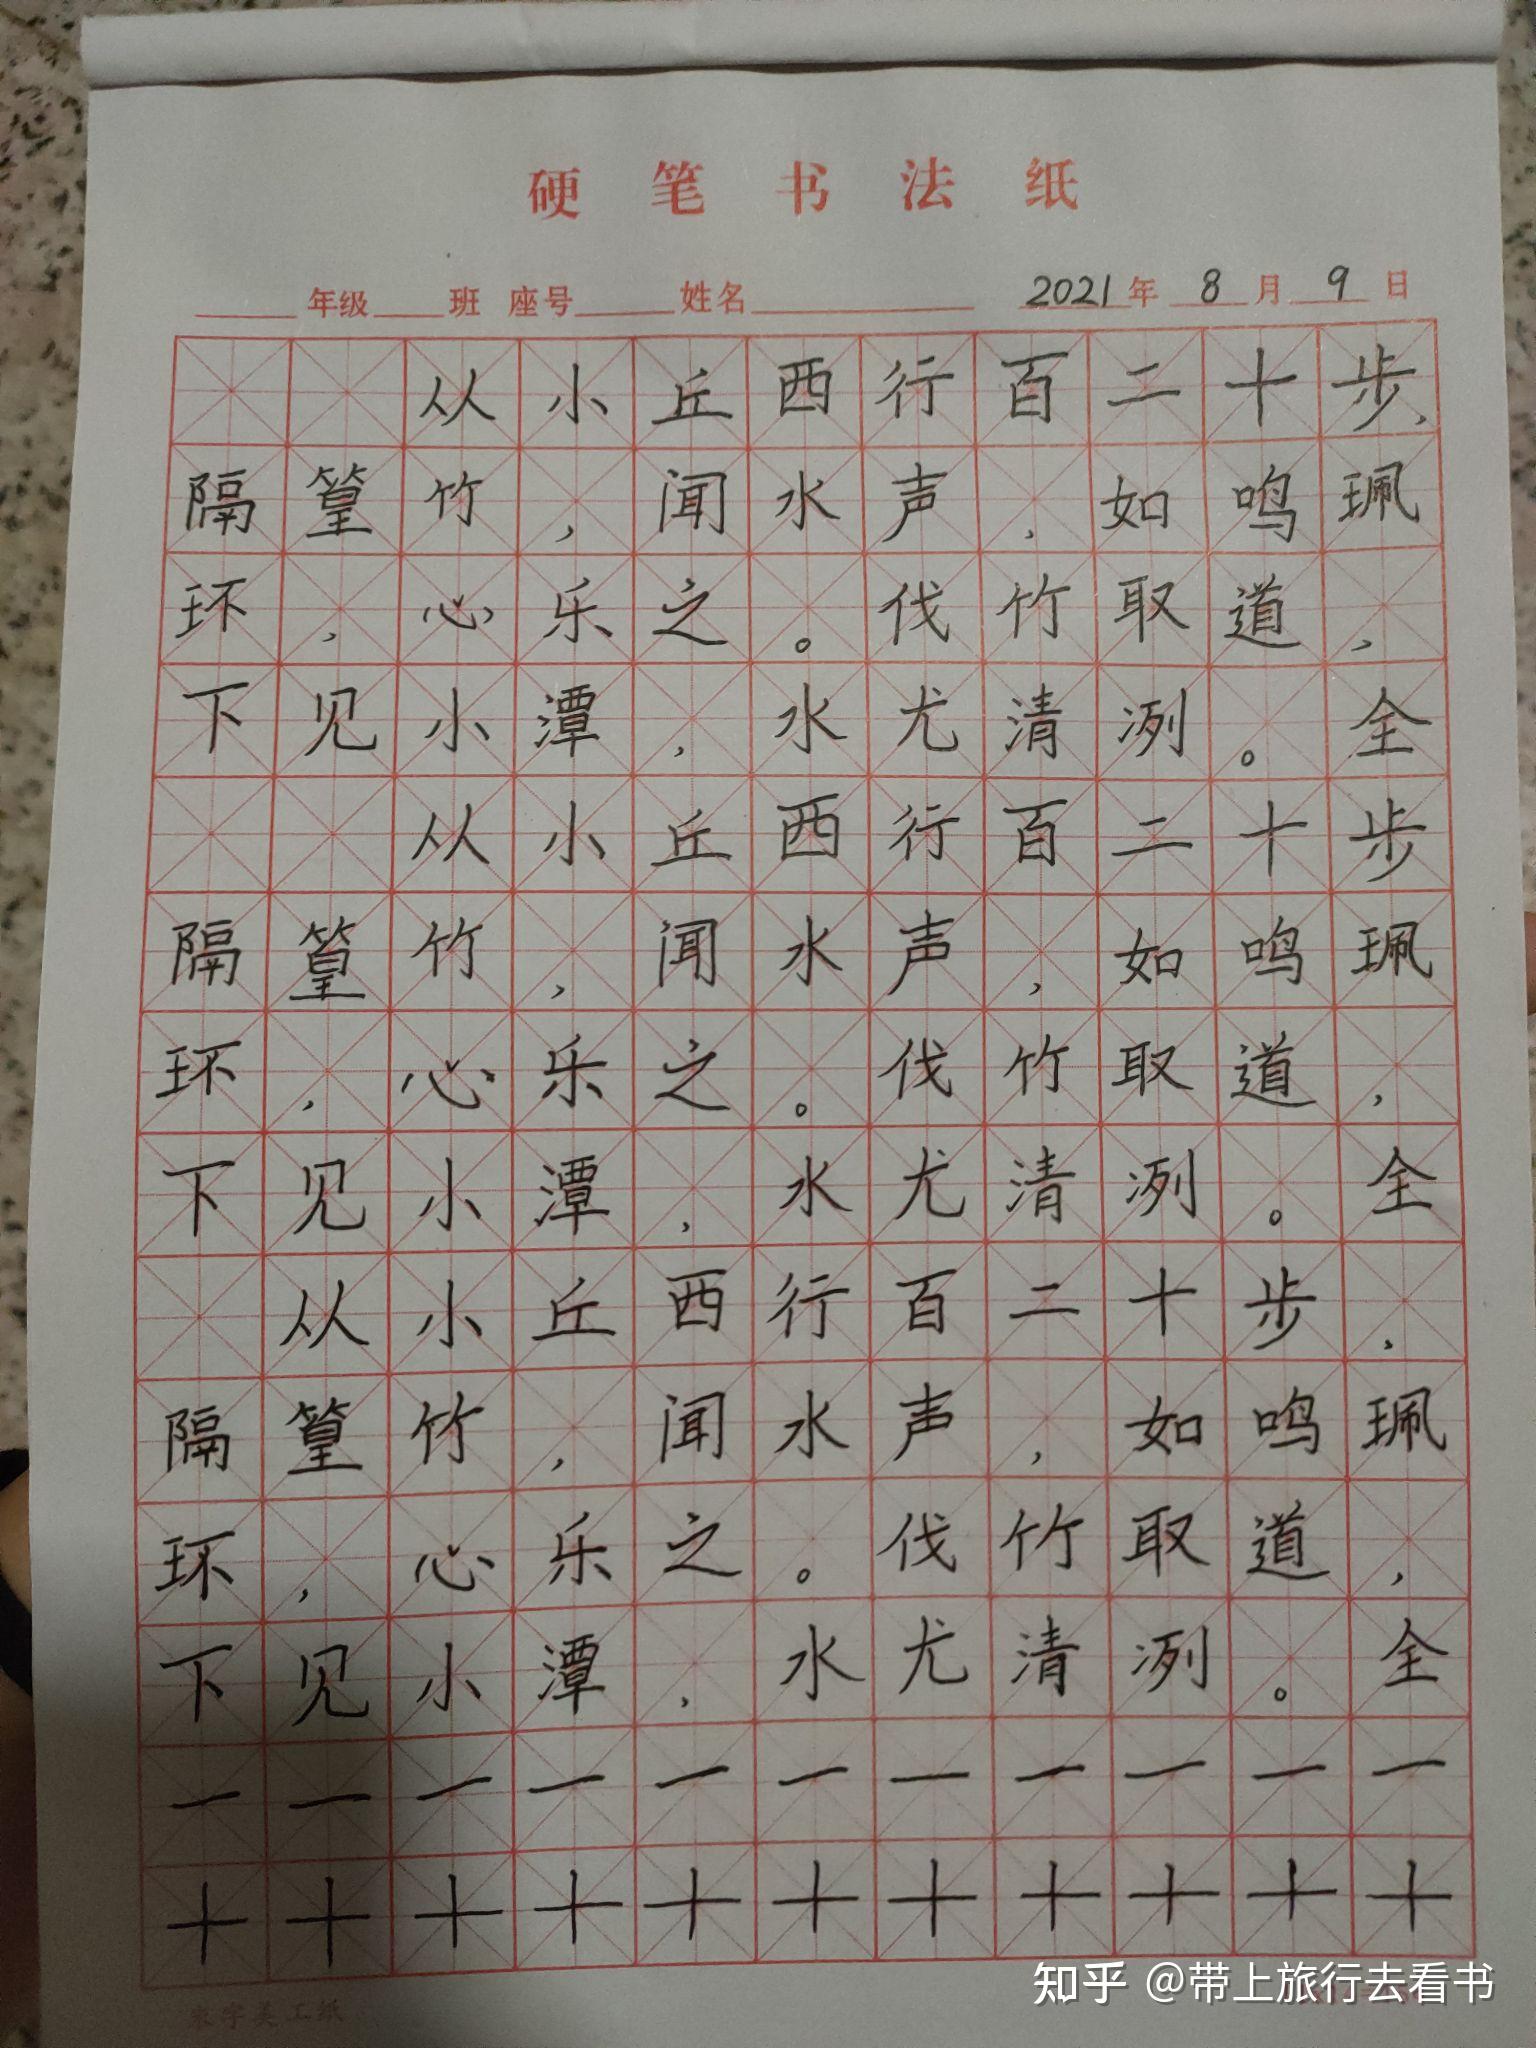 硬笔书法纸
年级 班 座号 姓名 2021年 8月 9日
从小丘西行百二十步,
隔篁竹,闻水声,如鸣珮
环,心乐之。伐竹取道,
下见小潭,水尤清洌。全
从小丘西行百二十步
隔篁竹,闻水声,如鸣珮
环,心乐之。伐竹取道,
下见小潭,水尤清洌。全
从小丘西行百二十步,
隔篁竹,闻水声,如鸣珮
环,心乐之。伐竹取道,
下见小潭,水尤清洌。全
一一一一一一一一一一一
十十十十十十十十十十十
知乎 @带上旅行去看书